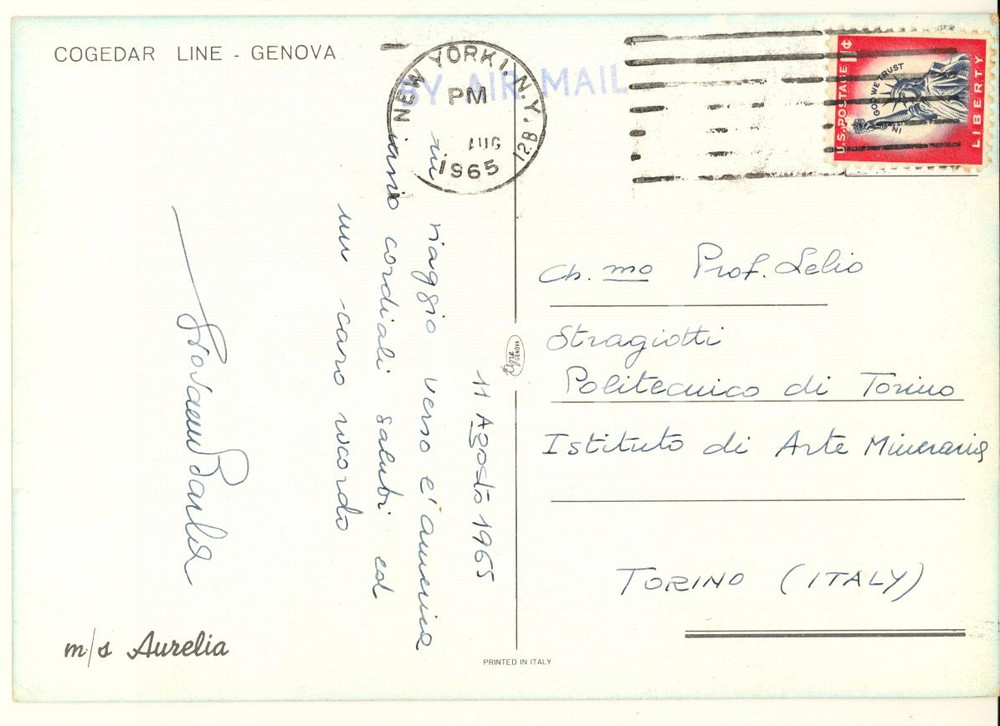 COGEDAR LINE - GENOVA
BY AIR MAIL
NEW YORK 1, N.Y.
PM
AUG
1965
12B
U.S. POSTAGE 11¢
IN GOD WE TRUST
LIBERTY
11 Agosto 1965
in viaggio verso l'america
invio cordiali saluti ed
un caro ricordo
Ch.mo Prof. Lelio
Stragiotti
Politecnico di Torino
Istituto di Arte Mineraria
TORINO (ITALY)
m/s Aurelia
PRINTED IN ITALY